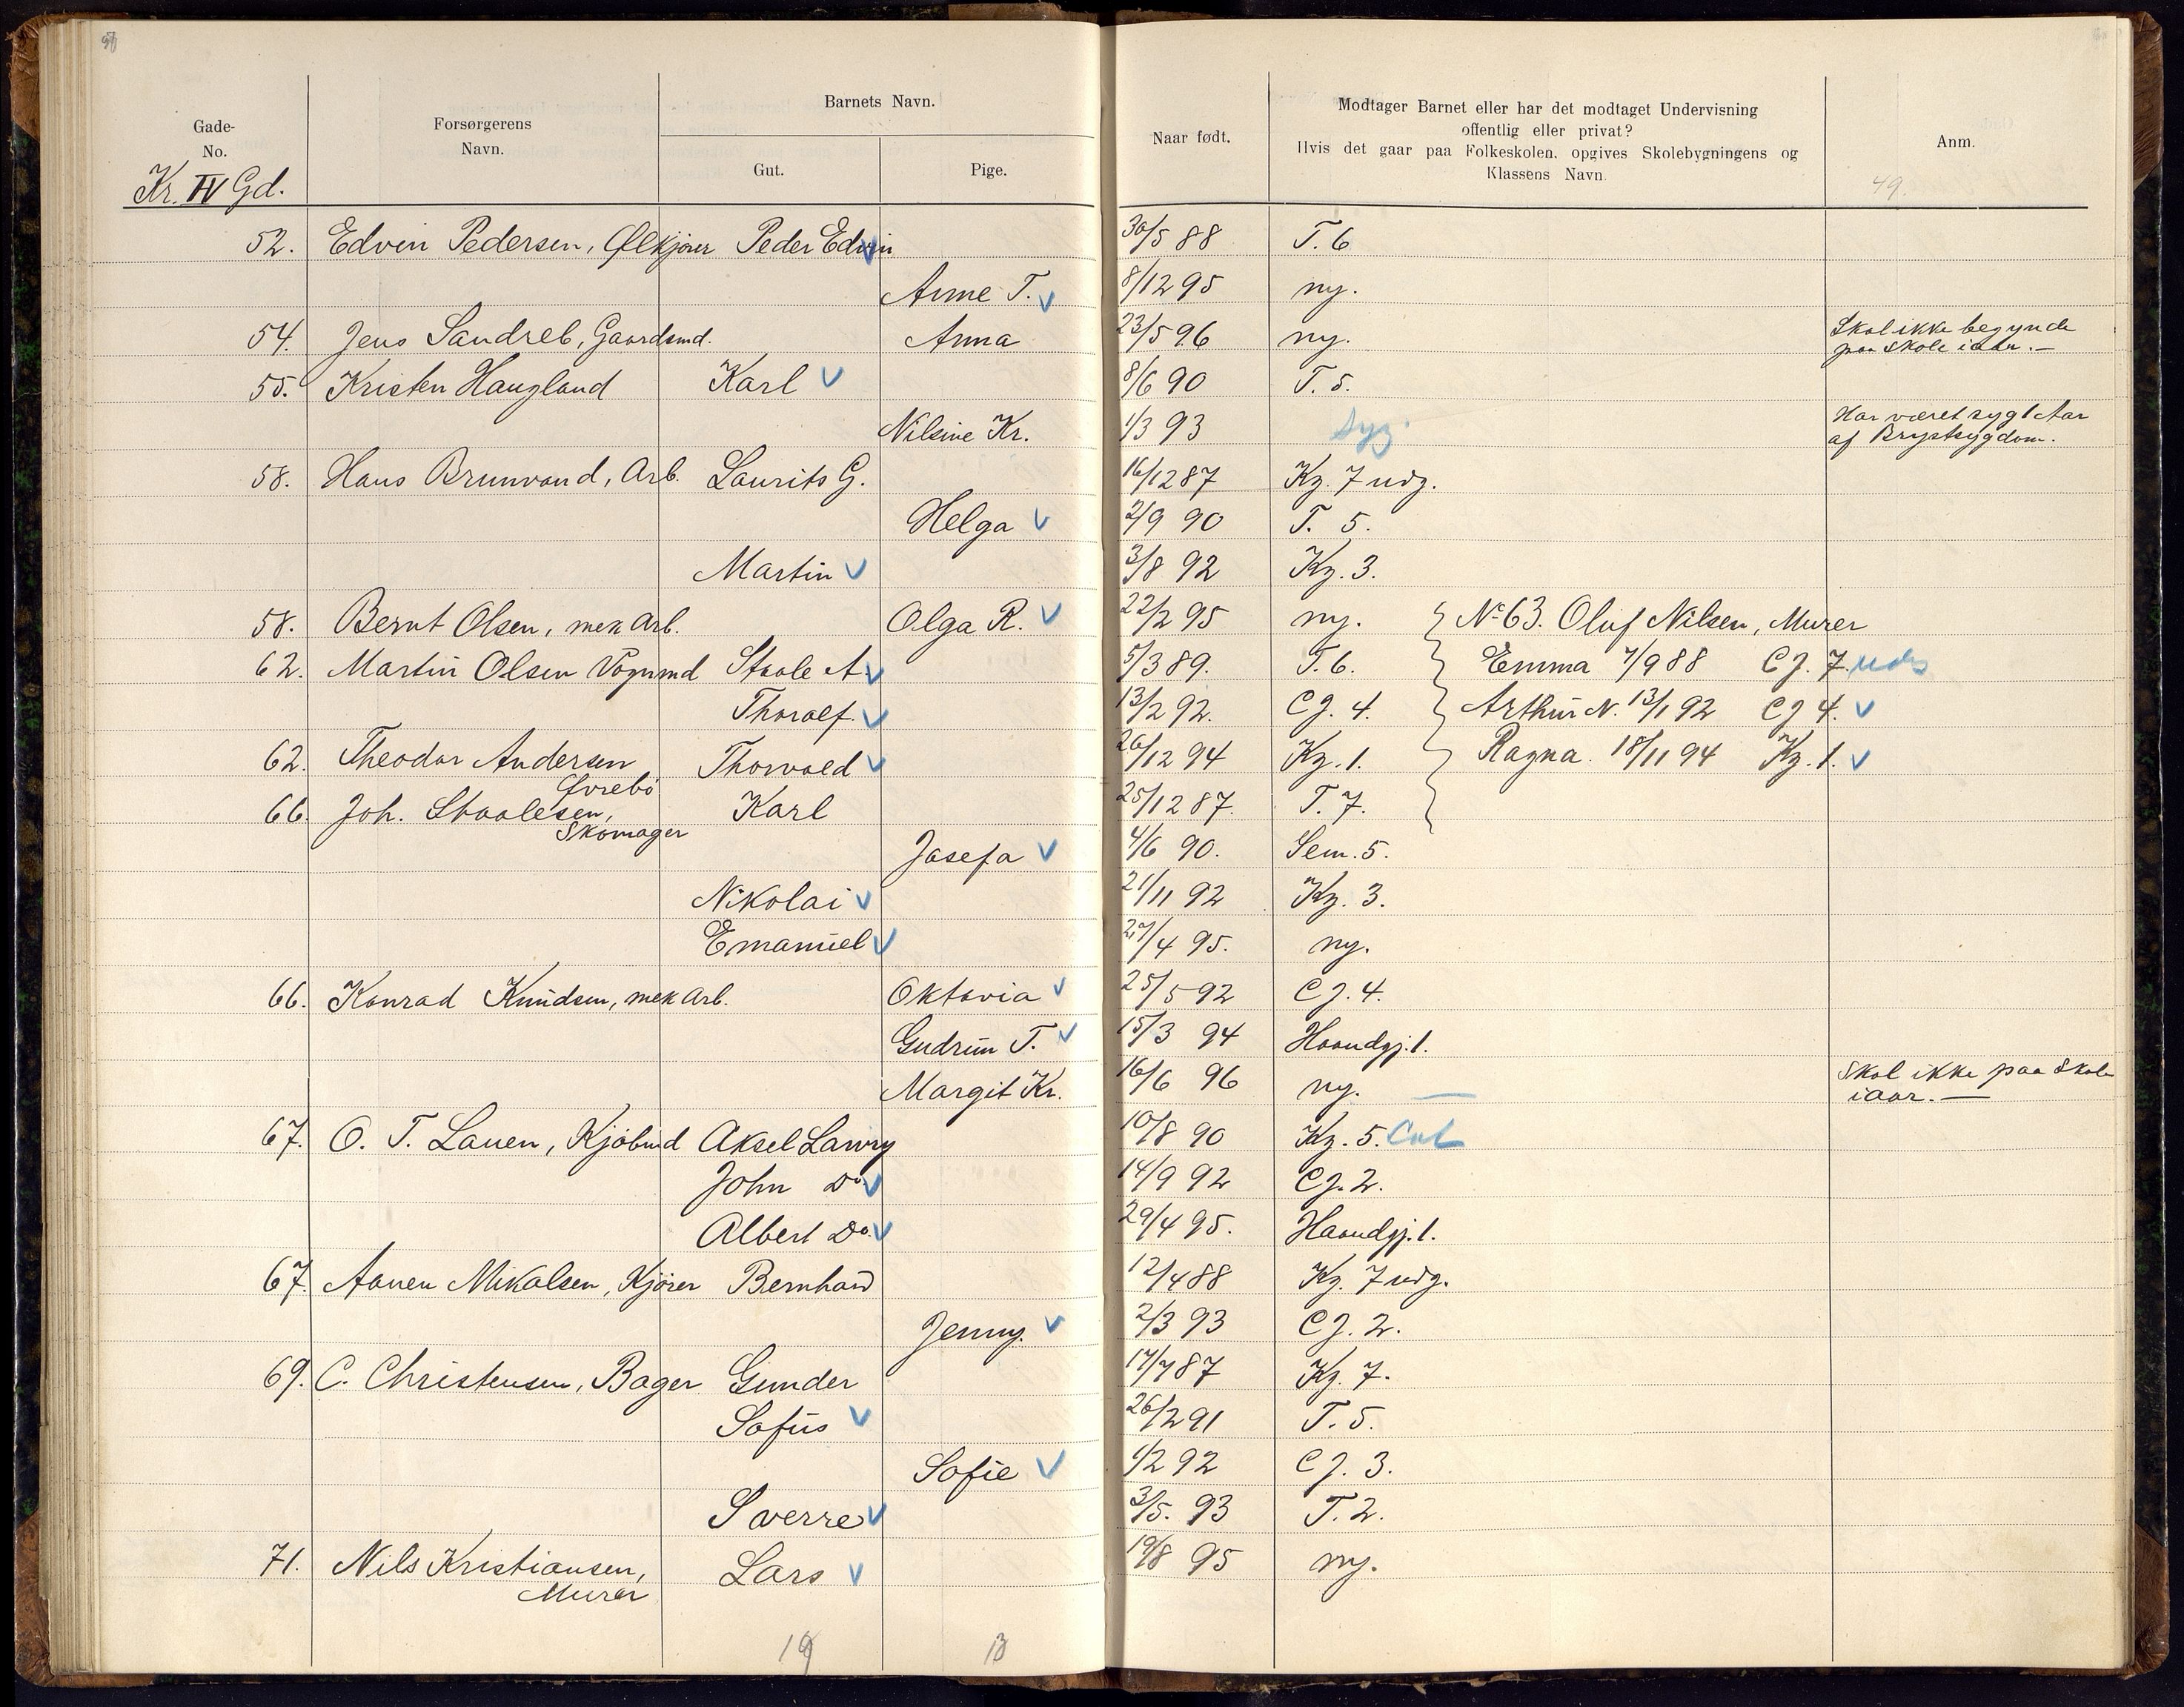 Gade-
No.
Kr. IV Gd.
Forsørgerens
Navn.
Barnets Navn.
Gut.
Pige.
Naar født.
Modtager Barnet eller har det modtaget Undervisning
offentlig eller privat?
Hvis det gaar paa Folkeskolen, opgives Skolebygningens og
Klassens Navn.
Anm.
49.
52. Edvin Pedersen, Ølkjører Peder Edvin 30/5 88 T. 6
Anne T. 8/12 95 ny.
54. Jens Sandreb, Gaardsmd. Anna 23/5 96 ny. Skal ikke begynde
paa Skole iaar.—
55. Kristen Haugland Karl 8/6 90 T. 5.
Nilsine Kr. 1/3 93 Syg. Har været syg 1 Aar
af Brystsygdom.
58. Hans Brunvand, Arb. Laurits G. 16/12 87 Kz. 7 udg.
Helga 2/9 90 T. 5.
Martin 3/8 92 Kz. 3.
58. Bernt Olsen, mek Arb. Olga R. 22/2 95 ny. No 63. Oluf Nilsen, Murer
62. Martin Olsen Vognmd Staale A. 5/3 89. T. 6. Emma 7/9 88 CJ. 7. uds
Thoralf. 13/2 92. CJ. 4. Arthur N. 13/1 92 CJ 4.
62. Theodor Andersen Thorvald 26/12 94 Kz. 1. Ragna 18/11 94 Kz. 1.
Øvrebö
66. Joh. Staalesen, Karl 25/12 87. T. 7.
Skomager
Josefa 4/6 90. Sem. 5.
Nikolai 21/11 92 Kz. 3.
Emanuel 27/4 95. ny.
66. Konrad Knudsen, mek Arb. Oktavia 25/5 92 CJ. 4.
Gudrun T. 15/3 94 Haandgj. 1.
Margit Kr. 16/6 96 ny. Skal ikke paa Skole
iaar.—
67. O. T. Lauen, Kjöbmd Aksel Lawry 10/8 90 Kz. 5. Cat
John Do 14/9 92 CJ. 2.
Albert Do. 29/4 95. Haandgj. 1.
67. Aanen Mikalsen, Kjörer Bernhard 12/4 88 Kz. 7 udg.
Jenny. 2/3 93 CJ. 2.
69. C. Christensen, Bager Gunder 17/7 87 Kz. 7.
Sofus 26/2 91 T. 5.
Sofie 1/2 92 CJ. 3.
Sverre 3/5. 93 T. 2.
71. Nils Kristiansen, Lars 19/8 95 ny.
Murer
19 13